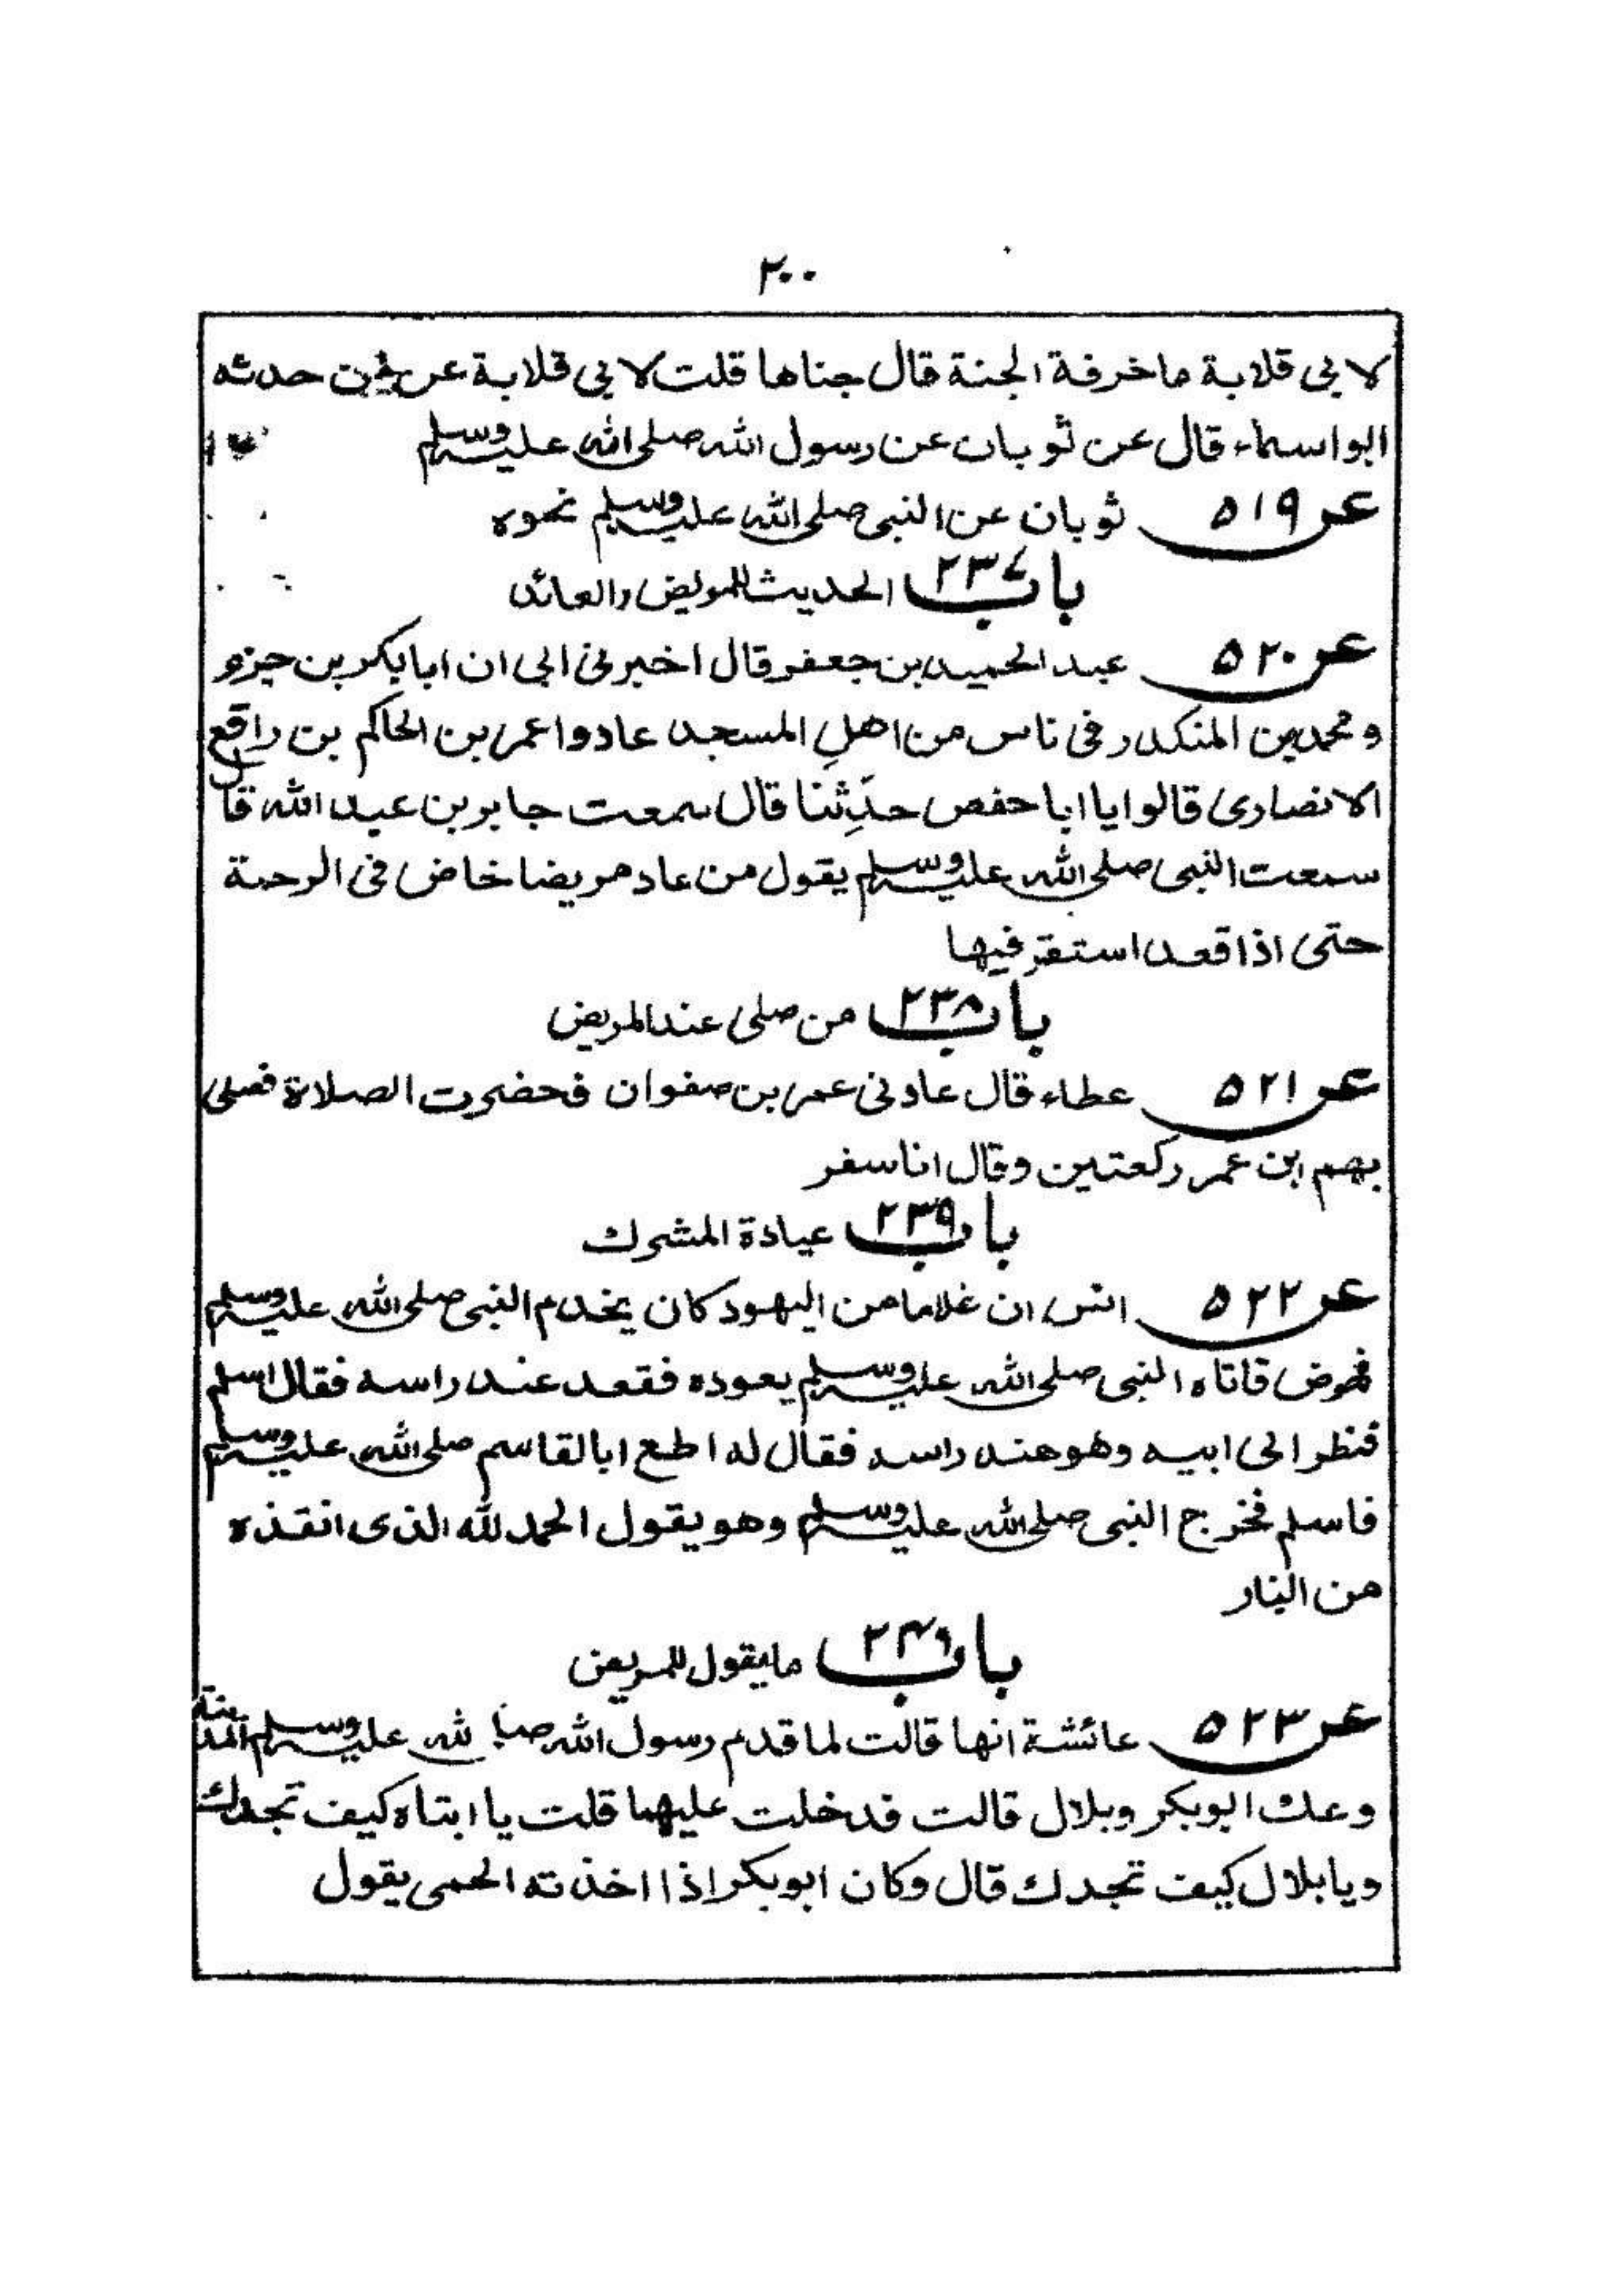 ٢٠٠
لابي قلابة ما خرفة الجنة قال جناها قلت لابي قلابة عن من حدثه
ابو اسماء قال عن ثوبان عن رسول الله صلى الله عليه وسلم
عن ٥١٩ ثوبان عن النبى صلى الله عليه وسلم نحوه
باب ٢٣٧ الحديث للمريض والعائد
عن ٥٢٠ عبد الحميد بن جعفر قال اخبرنى ابى ان ابا بكر بن حزم
و محمد بن المنكدر فى ناس من اهلِ المسجد عادوا عمر بن الحاكم بن رافع
الانصارى قالوا يا ابا حفص حدِّثنا قال سمعت جابر بن عبد الله قال
سمعت النبى صلى الله عليه وسلم يقول من عاد مريضا خاض فى الرحمة
حتى اذا قعد استقر فيها
باب ٢٣٨ من صلى عند المريض
عن ٥٢١ عطاء قال عادنى عمر بن صفوان فحضرت الصلاة فصلى
بهم ابن عمر ركعتين وقال انا سفر
باب ٢٣٩ عيادة المشرك
عن ٥٢٢ انس ان غلاما من اليهود كان يخدم النبى صلى الله عليه وسلم
فمرض فاتاه النبى صلى الله عليه وسلم يعوده فقعد عند راسه فقال اسلم
فنظر الى ابيه وهو عند راسه فقال له اطع ابا القاسم صلى الله عليه وسلم
فاسلم فخرج النبى صلى الله عليه وسلم وهو يقول الحمد لله الذى انقذه
من النار
باب ما يقول للمريض
عن ٥٢٣ عائشة انها قالت لما قدم رسول الله صلى الله عليه وسلم المدينة
وعك ابو بكر وبلال قالت فدخلت عليهما قلت يا ابتاه كيف تجدك
ويا بلال كيف تجدك قال وكان ابو بكر اذا اخذته الحمى يقول